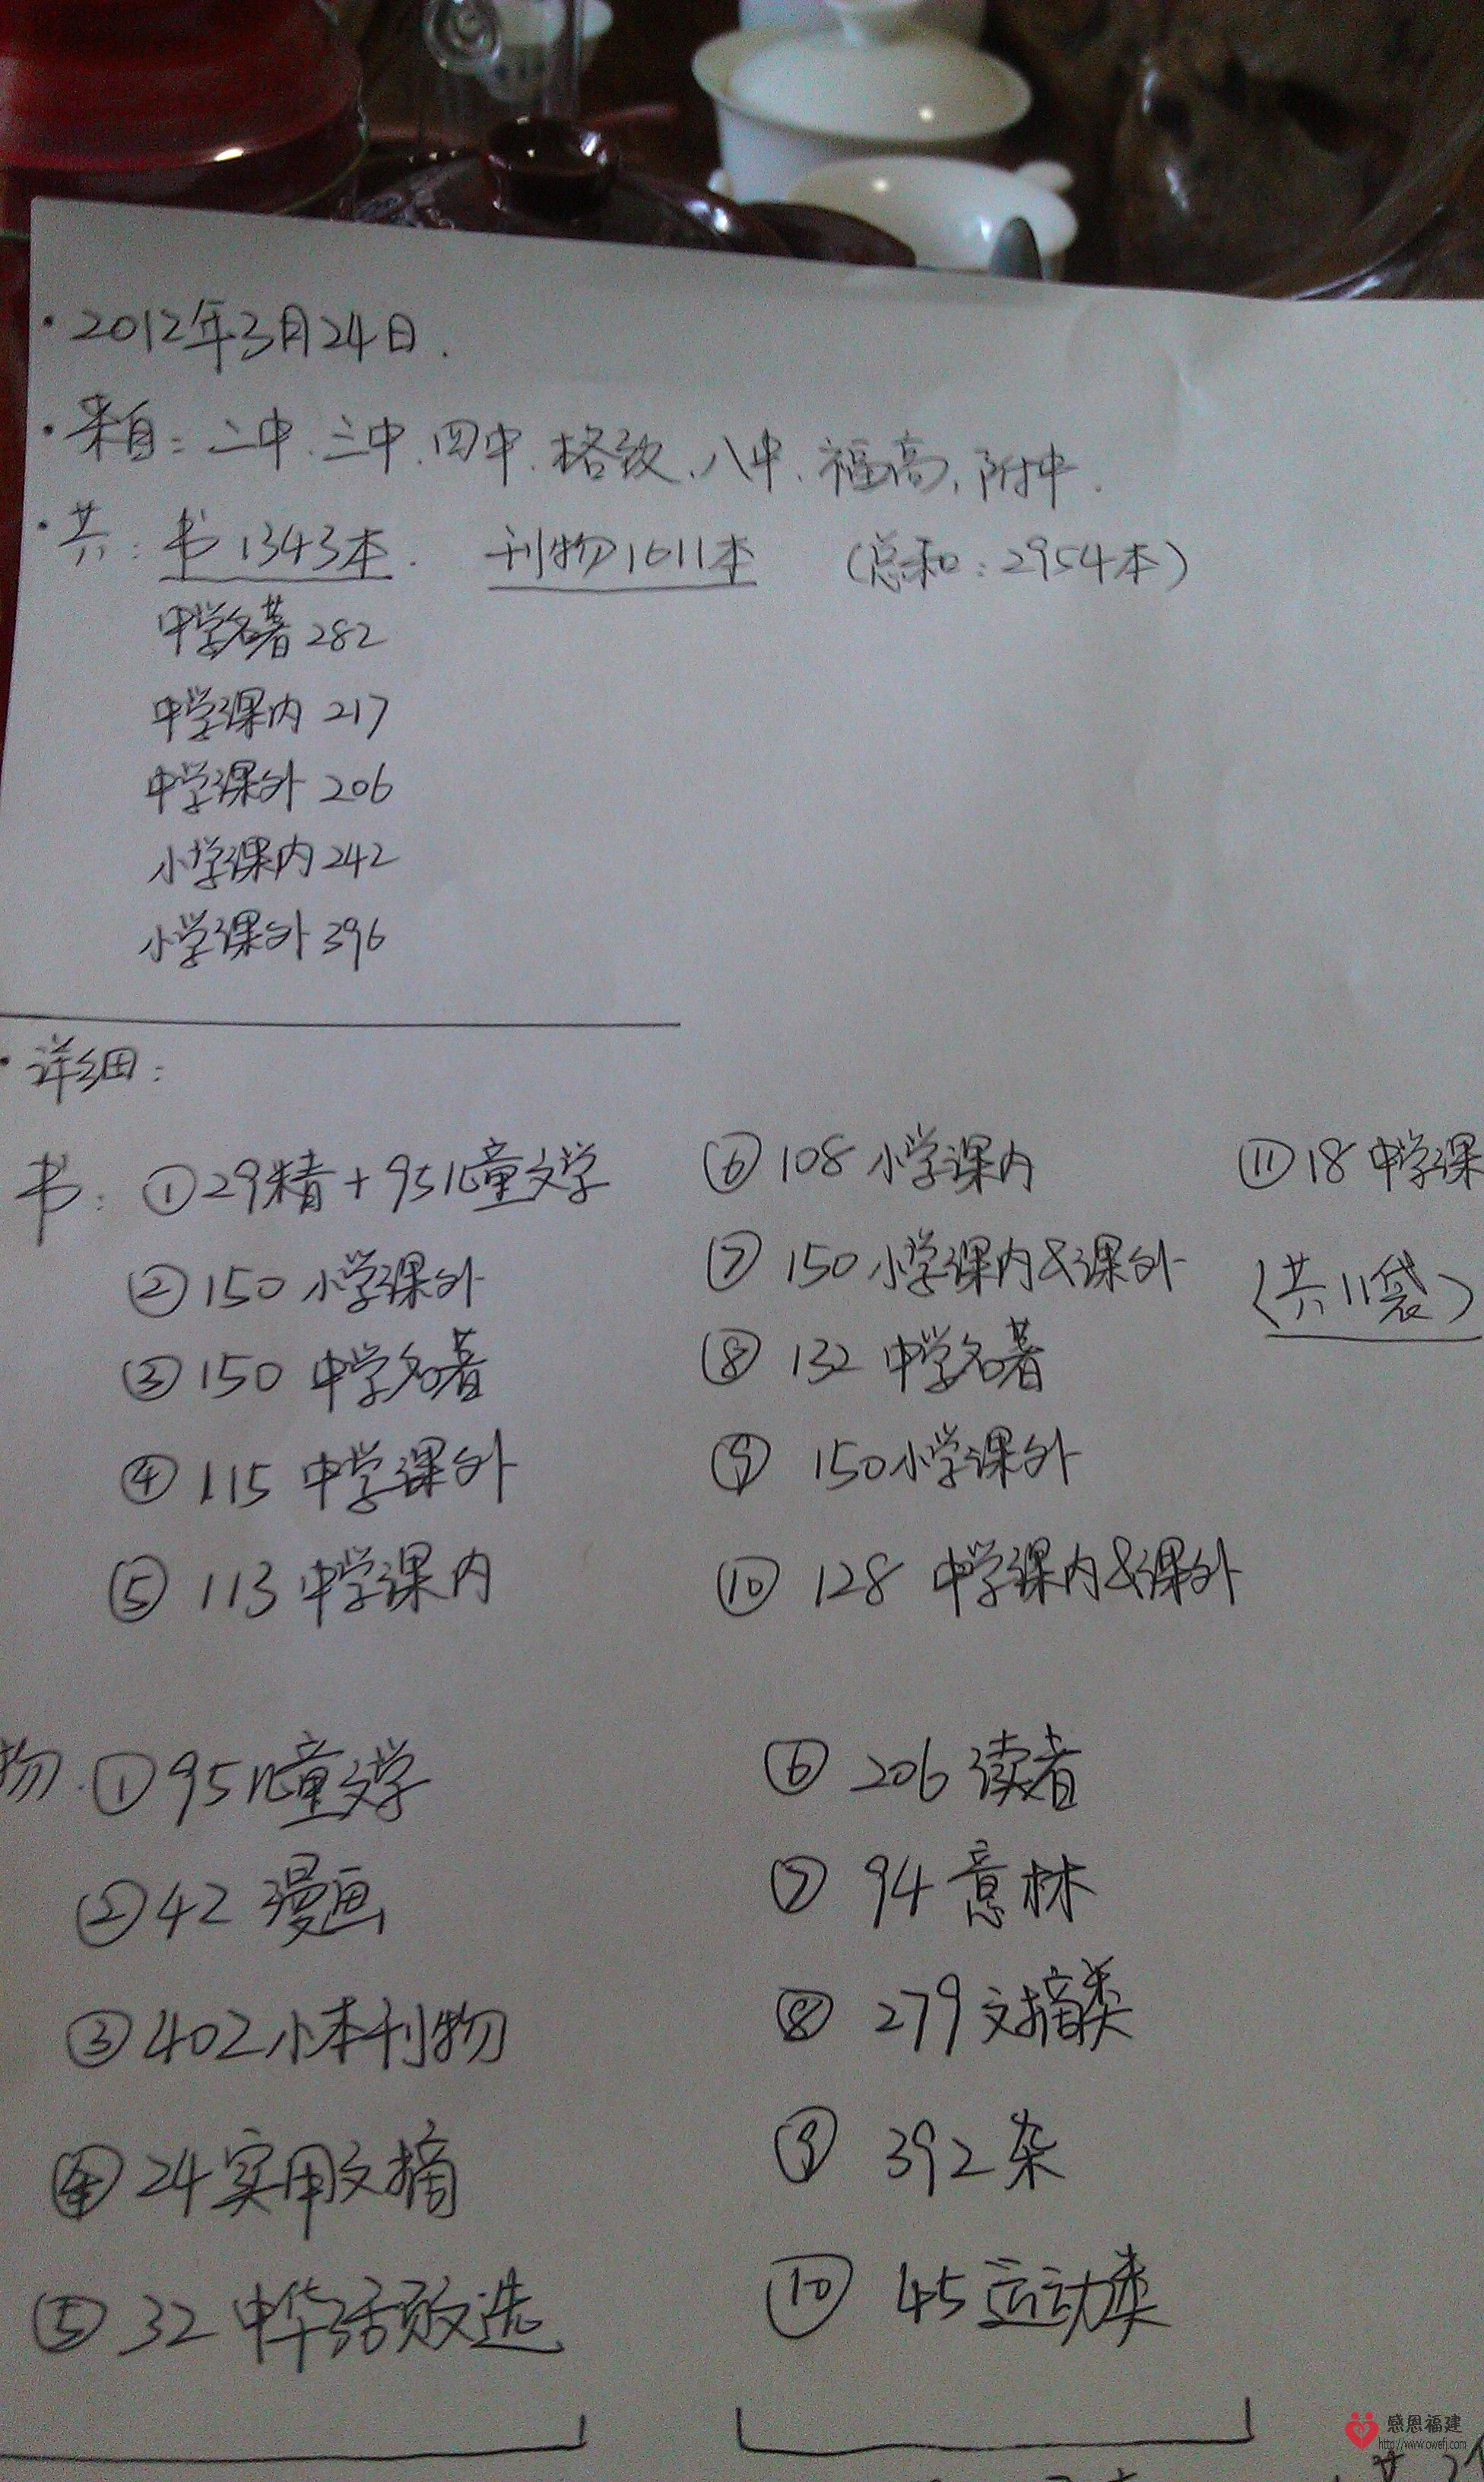 ·2012年3月24日.
·来自：二中、三中、四中、格致、八中、福高、附中.
·共：书1343本. 刊物1611本 （总和：2954本）
中学名著282
中学课内 217
中学课外 206
小学课内242
小学课外396
·详细：
书：①29精+95儿童文学 ⑥108小学课内 ⑪18中学课
②150 小学课外 ⑦150小学课内&课外 （共11袋）
③150 中学名著 ⑧132 中学名著
④115 中学课外 ⑨150小学课外
⑤113 中学课内 ⑩128 中学课内&课外
物.①95儿童文学 ⑥206读者
②42 漫画 ⑦94意林
③402小本刊物 ⑧279文摘类
④24实用文摘 ⑨392杂
⑤32 中华活页文选 ⑩45运动类
感恩福建
http://www.owefj.com